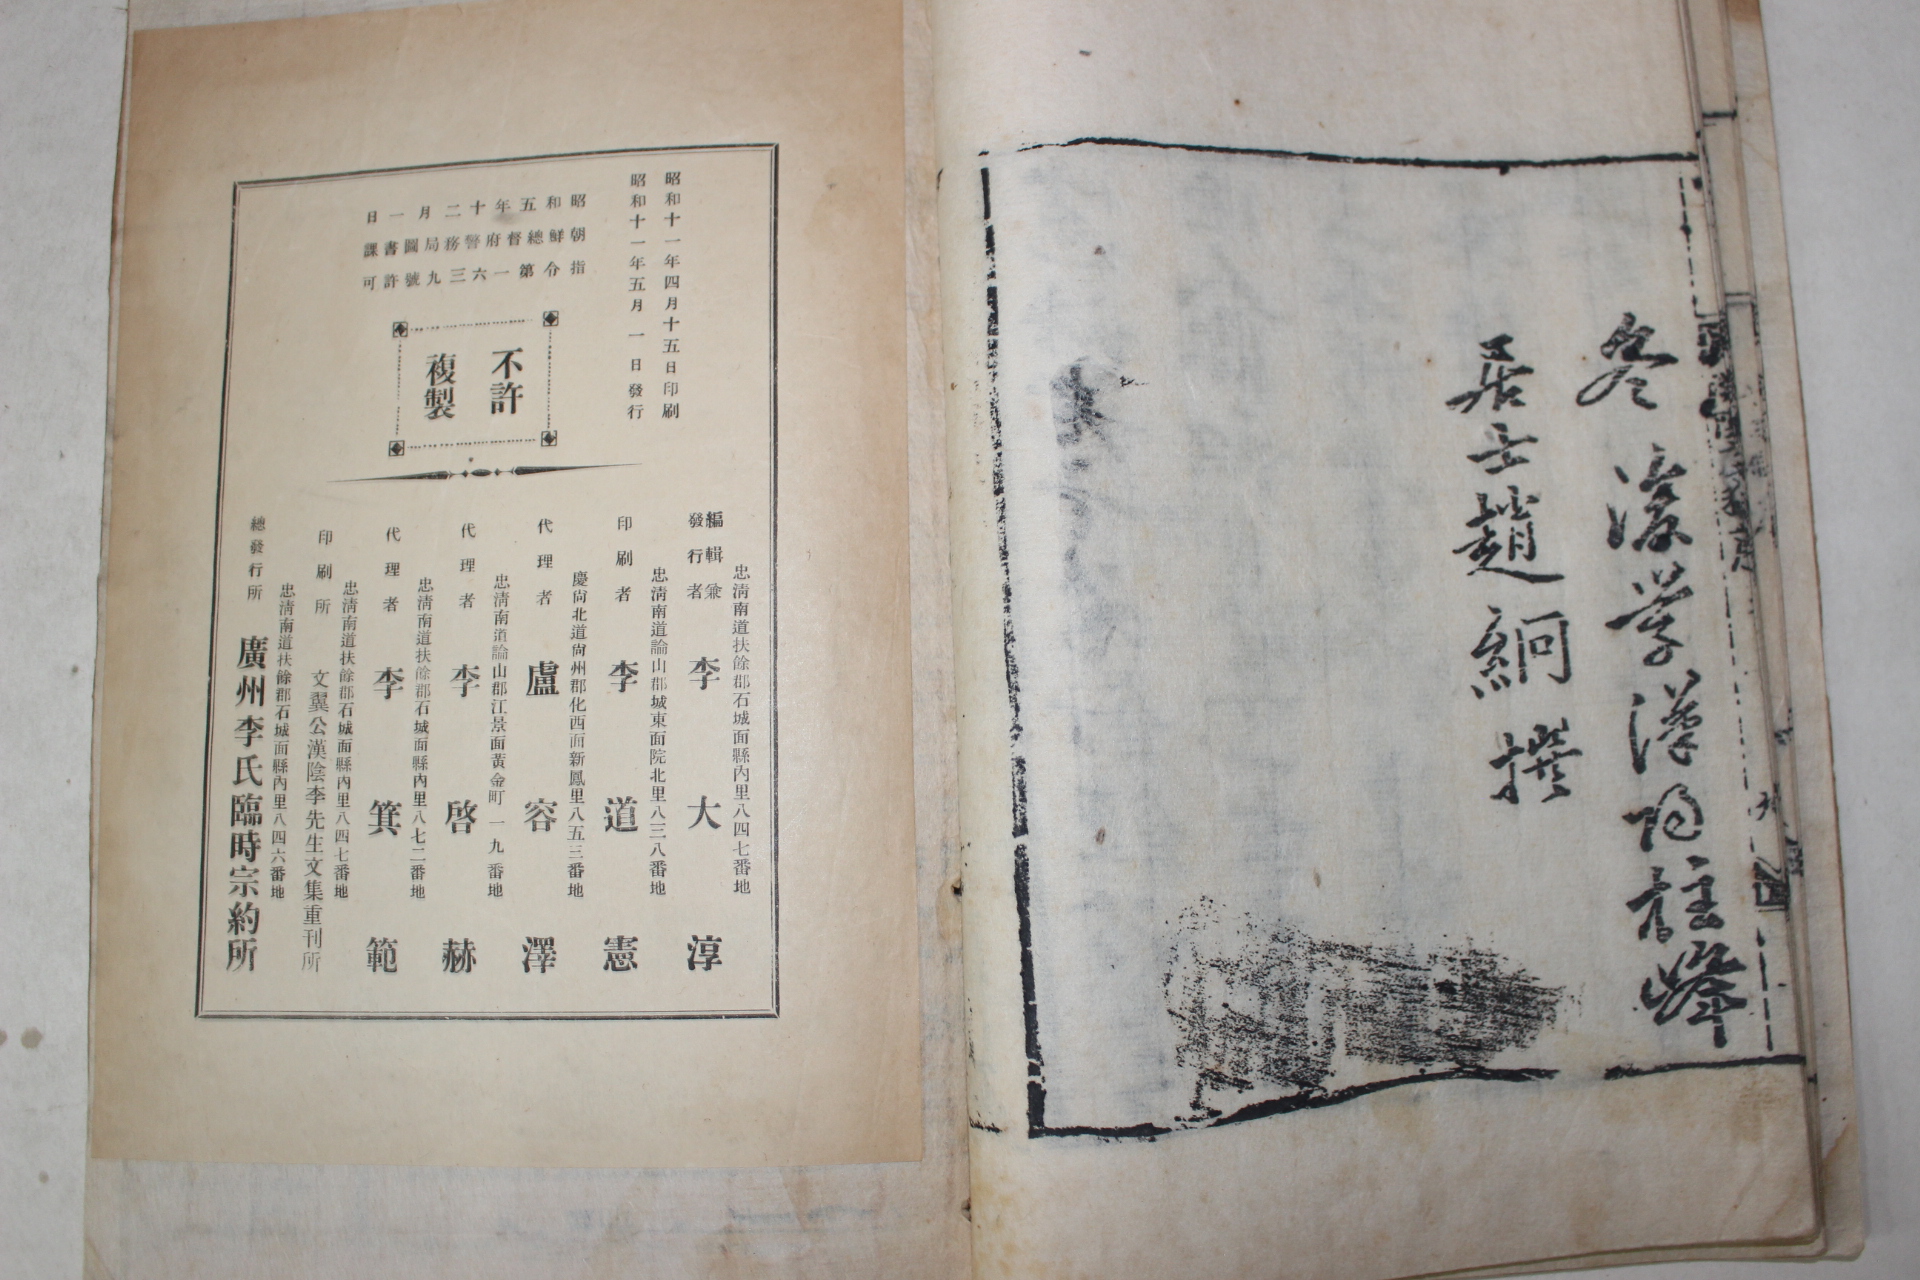 冬湥學漢陽柱峰
居士趙絅撰
昭和十一年四月十五日印刷
昭和十一年五月一日發行
昭和五年十二月一日
朝鮮總督府警務局圖書課
指令第一六三九號許可
不許
複製
忠淸南道扶餘郡石城面縣內里八四七番地
編輯兼
發行者 李大淳
忠淸南道論山郡城東面院北里八三八番地
印刷者 李道憲
慶尙北道尙州郡化西面新鳳里八五三番地
代理者 盧容澤
忠淸南道論山郡江景面黃金町一九番地
代理者 李啓赫
忠淸南道扶餘郡石城面縣內里八七二番地
代理者 李箕範
忠淸南道扶餘郡石城面縣內里八四七番地
印刷所 文翼公漢陰李先生文集重刊所
忠淸南道扶餘郡石城面縣內里八四六番地
總發行所 廣州李氏臨時宗約所